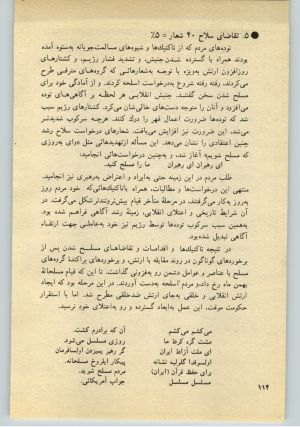 ۵. تقاضای سلاح ۴۰ شعار = ۵٪
توده‌های مردم که از تاکتیک‌ها و شیوه‌های مسالمت‌جویانه به‌ستوه آمده
بودند همراه با گسترده شدن‌جنبش، و تشدید فشار رژیم، و کشتارهای
روزافزون ارتش به‌ویژه با توجه به‌شعارهائی که گروه‌های مترقی طرح
می‌کردند، رفته رفته شروع به‌درخواست اسلحه کردند. و از آمادگی خود برای
مسلح شدن سخن گفتند. جنبش انقلابی هر لحظه بر آگاهی‌های توده
می‌افزود و آنان را متوجه دست‌های خالی‌شان می‌کرد. کشتارهای رژیم سبب
شد که توده‌ها ضرورت اعمال قهر را درک کنند. هرچه سرکوب شدیدتر
می‌شد، این ضرورت نیز افزایش می‌یافت. شعارهای درخواست سلاح رشد
چنین اعتقادی را نشان می‌دهد. این مسأله ازتهدیدهائی مثل «وای به‌روزی
که مسلح شویم» آغاز شد، و به‌چنین درخواست‌هائی انجامید:
ای رهبران ای رهبران ما را مسلح کنید.
طلب مردم در این زمینه حتی به‌ایراد و اعتراض به‌رهبری نیز انجامید.
منتهی این درخواست‌ها و مطالبات، همراه باتاکتیک‌هائی که خود مردم روز
به‌روز به‌کار می‌گرفتند، در مرحلهٔ متأخر قیام بیش‌تروتندترشکل می‌گرفت. در
آن شرایط تاریخی و اعتلای انقلابی، زمینهٔ رشد آگاهی فراهم شده بود.
به‌همین سبب سرکوب توده‌ها توسط رژیم نیز خود به‌عاملی جهت ارتقاء
آگاهی تبدیل شده‌بود.
در نتیجه تاکتیک‌ها و اقدامات و تقاضاهای مسلح شدن پس از
برخوردهای گوناگون در روند مقابله با ارتش، و برخوردهای پراکندهٔ گروه‌های
مسلح با عناصر و عوامل دشمن رو به‌فزونی گذاشت. تا این که قیام مسلحانهٔ
بهمن ماه رخ داد و مردم اسلحه به‌دست آوردند. در این مرحله بود که ایجاد
ارتش انقلابی و خلقی به‌جای ارتش ضدخلقی مطرح شد. اما با استقرار
حکومت موقت، این عمل به‌ابعاد گسترده و رو به‌اعتلای خود نرسید.
می‌کشم می‌کشم آن که برادرم کشت.
مشت گره کردهٔ ما روزی مسلسل می‌شود.
ای ملت آزاد ایران گر رهبر پمیرزن اولسافرمان
اولسرقدا گلولیه نشانه پیکار ایلروخ مسلحانه.
برای حفظ قرآن (ایران) مردم مسلح شوید.
مسلسل مسلسل جواب آمریکائی.
۱۱۴